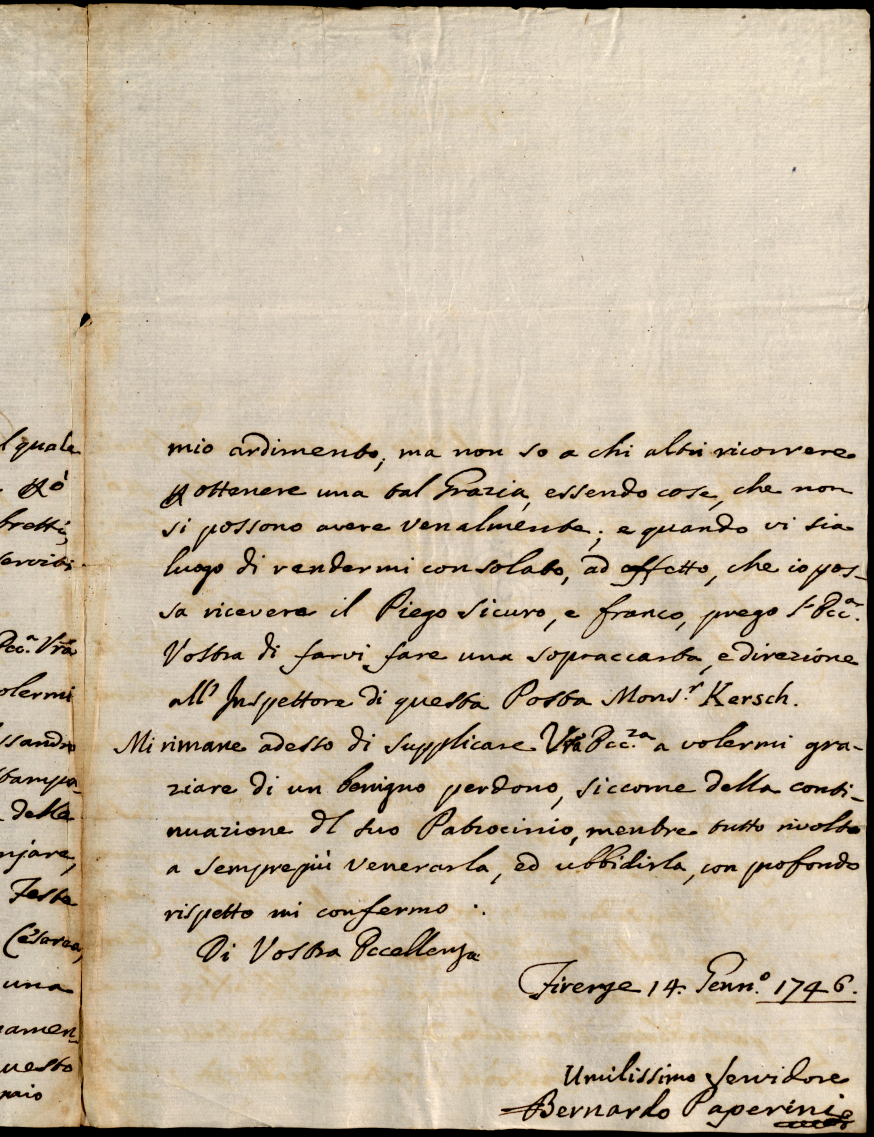 l quale
bretti,
serviti
Ecc.ª Vrã
olermi
ssandro
stampa-
della
njare,
Feste
Cesarea,
una
namen-
uesto
mio ardimento, ma non so a chi altri ricorrere
ꝑ ottenere una tal Grazia, essendo cose, che non
si possono avere venalmente; e quando vi sia
luogo di rendermi consolato, ad effetto, che io pos-
sa ricevere il Piego sicuro, e franco, prego l'Ecc.ª
Vostra di farvi fare una sopraccarta, e direzione
all' Inspettore di questa Posta Mons.r Kersch.
Mi rimane adesso di supplicare Vrã Ecc.za a volermi gra-
ziare di un benigno perdono, siccome della conti-
nuazione dl suo Patrocinio, mentre tutto rivolto
a semprepiù venerarla, ed ubbidirla, con profondo
rispetto mi confermo
Di Vostra Eccellenza
Firenze 14. Genn.º 1746.
Umilissimo Servidore
Bernardo Paperini